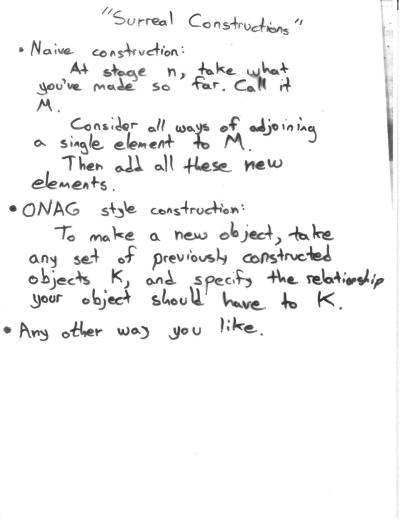 "Surreal Constructions"
• Naive construction:
At stage n, take what
you've made so far. Call it
M.
Consider all ways of adjoining
a single element to M.
Then add all these new
elements.
• ONAG style construction:
To make a new object, take
any set of previously constructed
objects K, and specify the relationship
your object should have to K.
• Any other way you like.